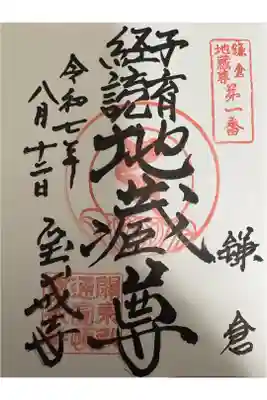 鎌倉
地蔵尊
第一番
鎌倉
子育
経読
地蔵尊
令和七年
八月十二日
宝戒寺